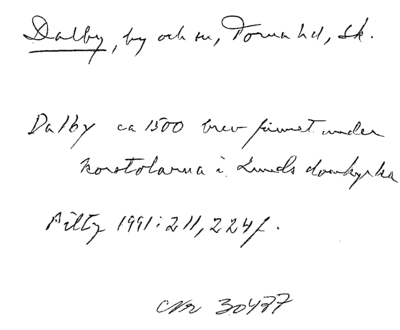 Dalby, by och sn, Torna hd, Sk.
Dalby ca 1500 brev funnet under
korstolarna i Lunds domkyrka
Piltz 1991:211, 224f.
30477